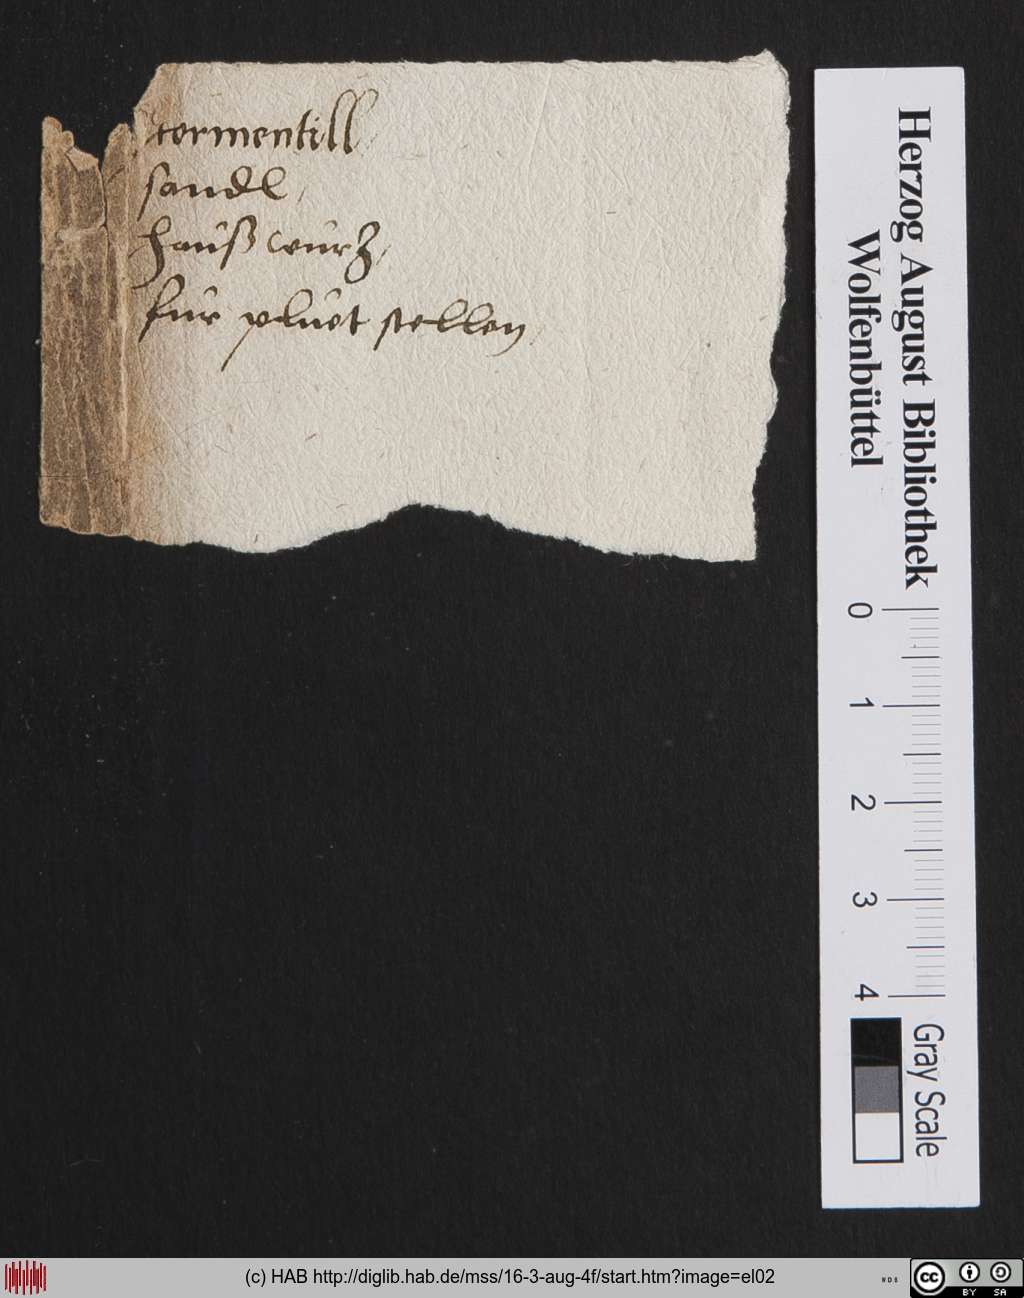 tormentill
sandl
hauß wurtz
fur pluet stellen
Herzog August Bibliothek
Wolfenbüttel
0
1
2
3
4
Gray Scale
(c) HAB http://diglib.hab.de/mss/16-3-aug-4f/start.htm?image=el02
WDB
cc
BY SA